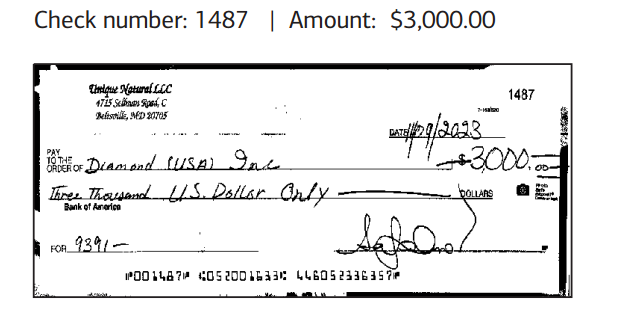 Check number: 1487 | Amount: $3,000.00
Unique Natural LLC
1487
4715 Sellman Road, C
Beltsville, MD 20705
DATE 11/09/2023
PAY TO THE ORDER OF Diamond (USA) Inc
$3000.00
Three Thousand U.S. Dollar Only DOLLARS
Bank of America
FOR 9391-
⑈001487⑈ ⑆052001633⑆ 446052336357⑈